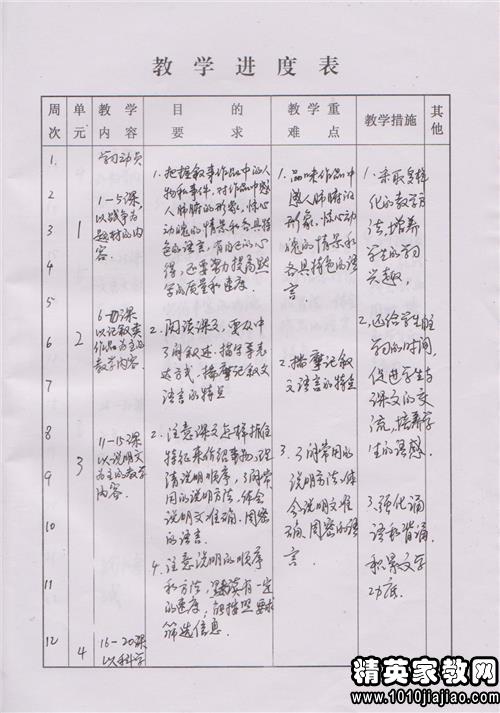 教学进度表
周次
单元
教学内容
目的要求
教学重难点
教学措施
其他
1
2
3
4
5
6
7
8
9
10
11
12
1
2
3
4
学习动员
1-5课,
以战争为
题材的内
容.
6-10课
以记叙类
作品为主的
教学内容.
11-15课
以说明文
为主的教学
内容.
16-20课
以科学
1.把握叙事作品中的人
物和事件,对作品中感
人肺腑的形象,惊心
动魄的情景和各具特
色的语言,有自己的心
得,还要努力提高默
写的质量和速度
2.阅读课文,要从中
了解叙述、描写等表
达方式,揣摩记叙文
语言的特点
2.注意课文怎样抓住
特征来介绍事物,理
清说明顺序,了解常
用的说明方法,体会
说明文准确、周密
的语言.
4.注意说明的顺序
和方法,默读有一定
的速度,能按照要求
筛选信息.
1.品味作品中
感人肺腑的
形象,惊心动
魄的情景和
各具特色的语
言.
2.揣摩记叙
文语言的特点
3.了解常用的
说明方法,体
会说明文准
确、周密的语
言
1.采取多样
化的教学方
法,培养
学生的学习
兴趣,
2.还给学生
学习的时间,
促进学生与
课文的交
流,培养学
生的语感.
3.强化诵
读和背诵,
积累文学
功底.
精英家教网
www.1010jiajiao.com